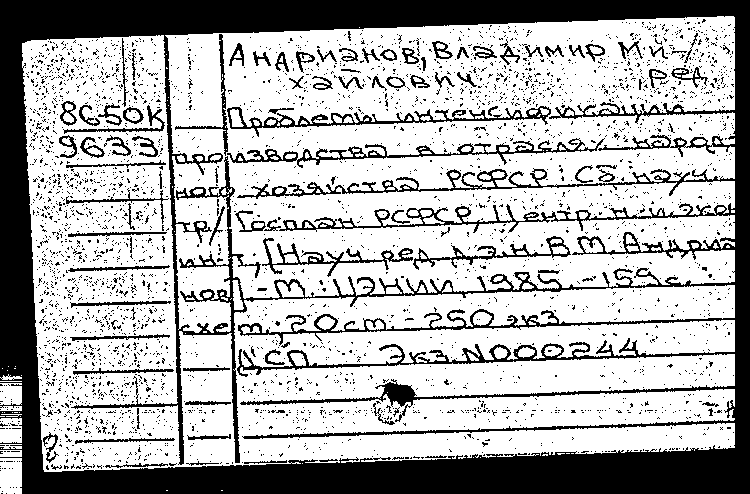 Андрианов, Владимир Ми-
хайлович, ред.
8650К Проблемы интенсификации
9633 производства в отраслях народ-
ного хозяйства РСФСР: Сб. науч.
тр/ Госплан РСФСР, Центр. н.-и. экон
ин-т; [Науч ред д.э.н. В.М. Андриа
нов]. - М.: ЦЭНИИ, 1985. - 159 с.
схем.; 20 ст. - 250 экз.
ДСП. Экз. N000244